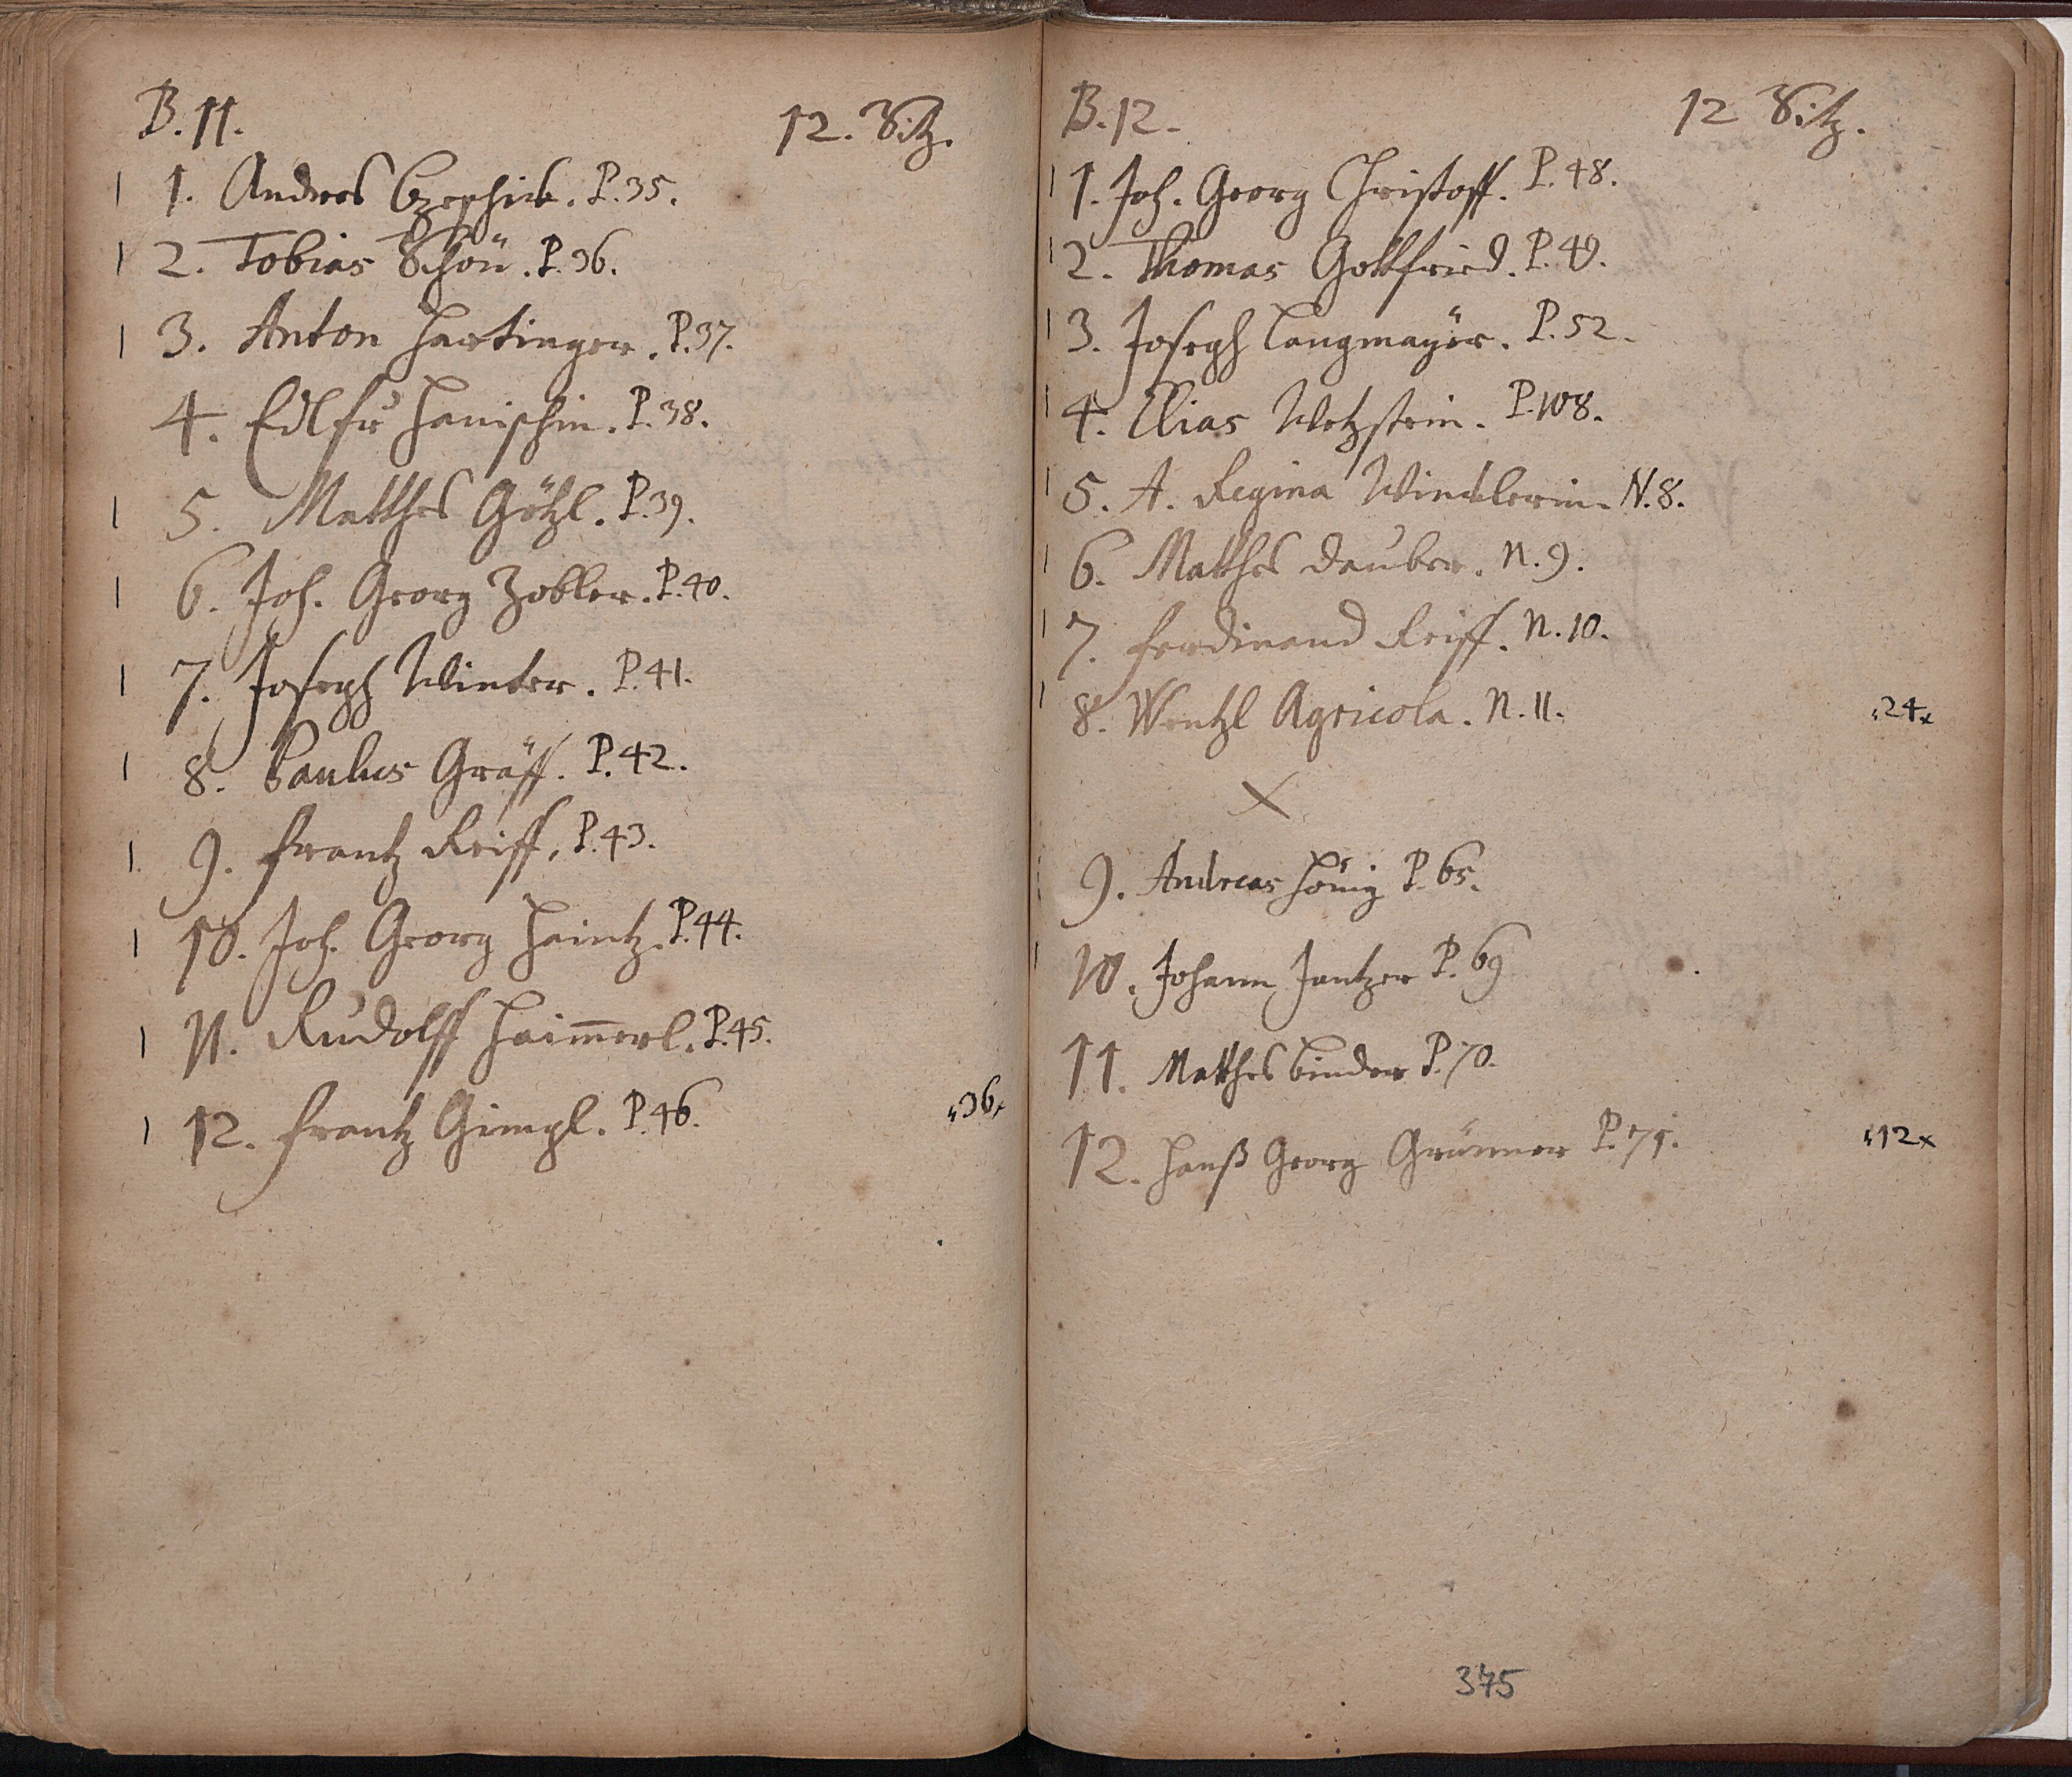 B. 11. 12. Sitz.
1. Andres P. 35.
2. Tobias Schön. P. 36.
3. Anton Hartinger. P. 37.
4. Edlfr Hanischin. P. 38.
5. Matthes Götzl. P. 39.
6. Joh. Georg Zobler. P. 40.
7. Joseph Winter. P. 41.
8. Paulus Gräff. P. 42.
9. Frantz Reiff. P. 43.
10. Joh. Georg Haintz. P. 44.
11. Rudolff Haim̅erl. P. 45.
12. Frantz Gimpl. P. 46. 36x
B. 12. 12 Sitz.
1. Joh. Georg Christoff. P. 48.
2. Thomas Gottfried. P. 49.
3. Joseph Langmayër. P. 52.
4. Elias Wetzstein. P. 108.
5. A. Regina Wincklerin. N. 8.
6. Matthes Dauber. N. 9.
7. Ferdinand Reiff. N. 10.
8. Wentzl Agricola. N. 11. 24x
X
9. Andreas Hönig P. 65.
10. Johann Jantzer P. 69
11. Matthes Binder P. 70.
12. Hanß Georg Grünner P. 71. 12x
375